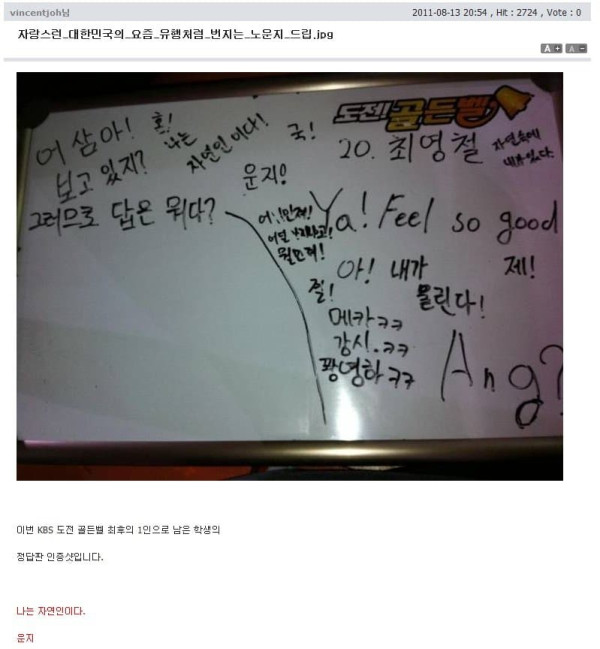 vincentjoh님
2011-08-13 20:54 , Hit : 2724 , Vote : 0
자랑스런_대한민국의_요즘_유행처럼_번지는_노운지_드립.jpg
A + A -
도전! 골든벨
어 삼아! 혼! 나는 자연인이다! 국!
20. 최영철 자연속에 내가 있다.
보고 있지?
운지!
그러므로 답은 뭐다?
Ya! Feel so good
아! 내가 제!
물린다!
질!
메카ㅋㅋ
강시.ㅋㅋ
꽝영하ㅋㅋ
Ang?
이번 KBS 도전 골든벨 최후의 1인으로 남은 학생의
정답판 인증샷입니다.
나는 자연인이다.
운지